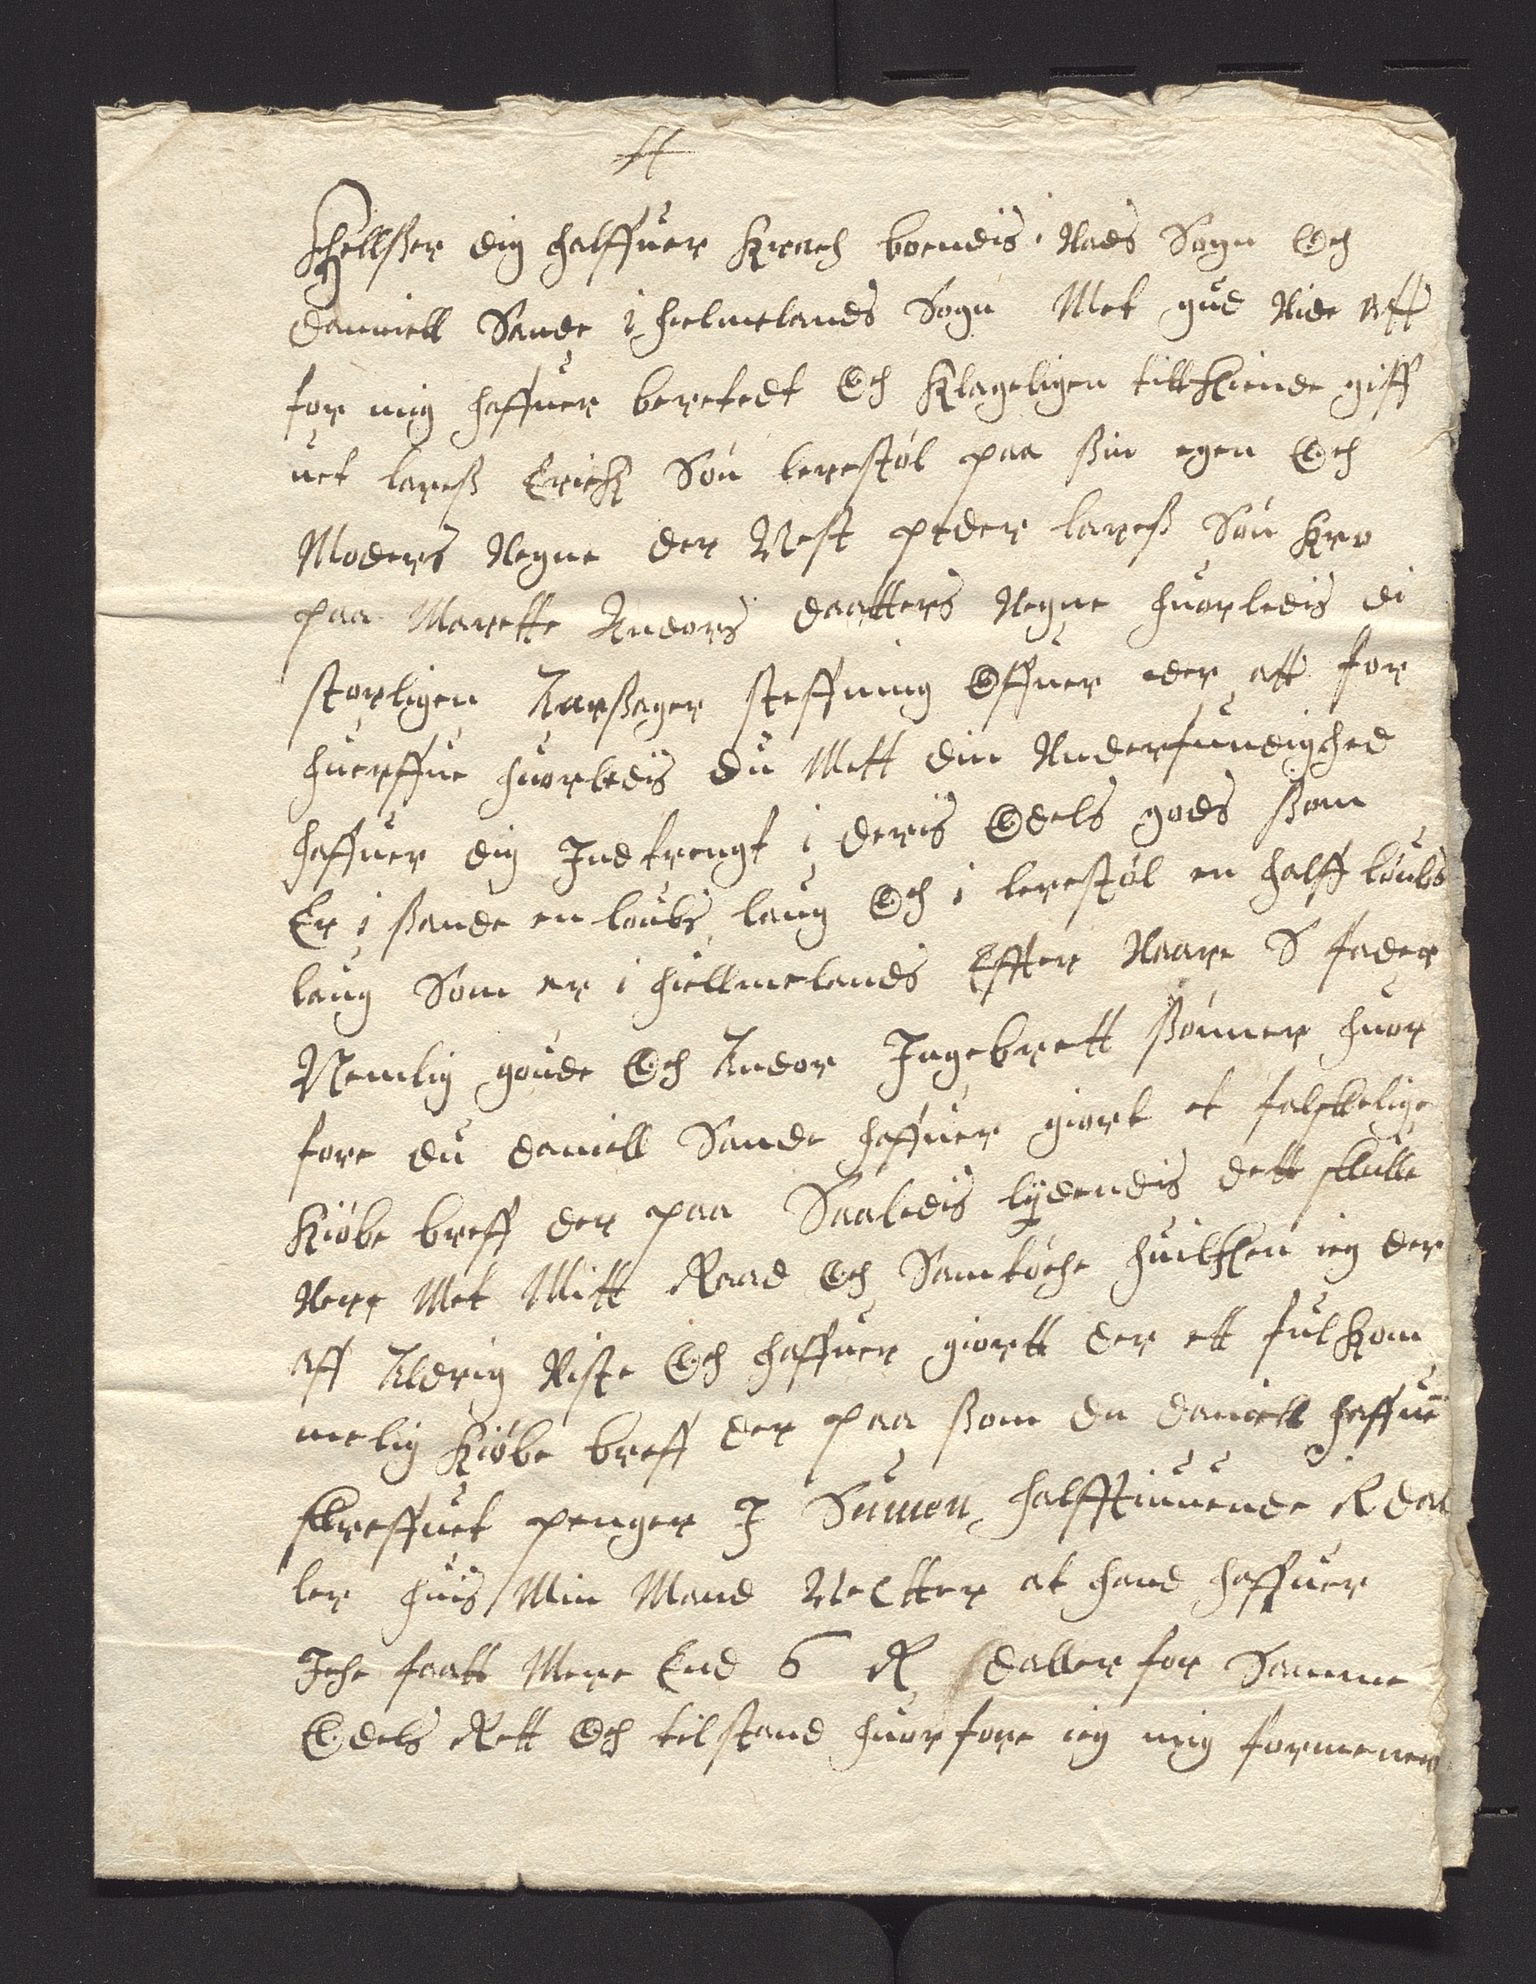 H
Hellßer dig halffuer Krach boendis i Nads Sogn Och
danniell Sande i hielmelands Sogn Met gud Nide att
for mig haffuer beretedt Och Klageligen tillkiende giff
uet lareß Erichß Søn lerestøl paa ßin egen Och
Moders Vegne der Nest peder lareß Søn Kro
paa Marette Andors daatters Vegne huorledis di
storligen Aarßager steffning Offuer eder att for
huerffue huorledis du Mett din Underfundighed
haffuer dig Indtrengt i deris Odels gods ßom
Er i ßande en loubs laug Och i lerestøl en halff loubs
laug Som er i hiellmelands Effter Vaare S fader
Nemlig goude Och Andor Ingebrett ßønner huor
fore du daniell Sande haffuer giort et falskelige
Kiøbe breff der paa Saaledis lydendis dett skulle
Vere Met Mitt Raad Och Samtøche huilchen ieg der
aff Aldrig Viste Och haffuer giortt der ett fulkom
melig Kiøbe breff der paa ßom du daniell haffuer
skreffuet penger I Summen halfftiuuende Rdal
ler huis Min Mand Vedtter at hand haffuer
Iche faatt Mere End 6 R daller for Samme
Odels Rett Och tilstand huorfore ieg mig formener